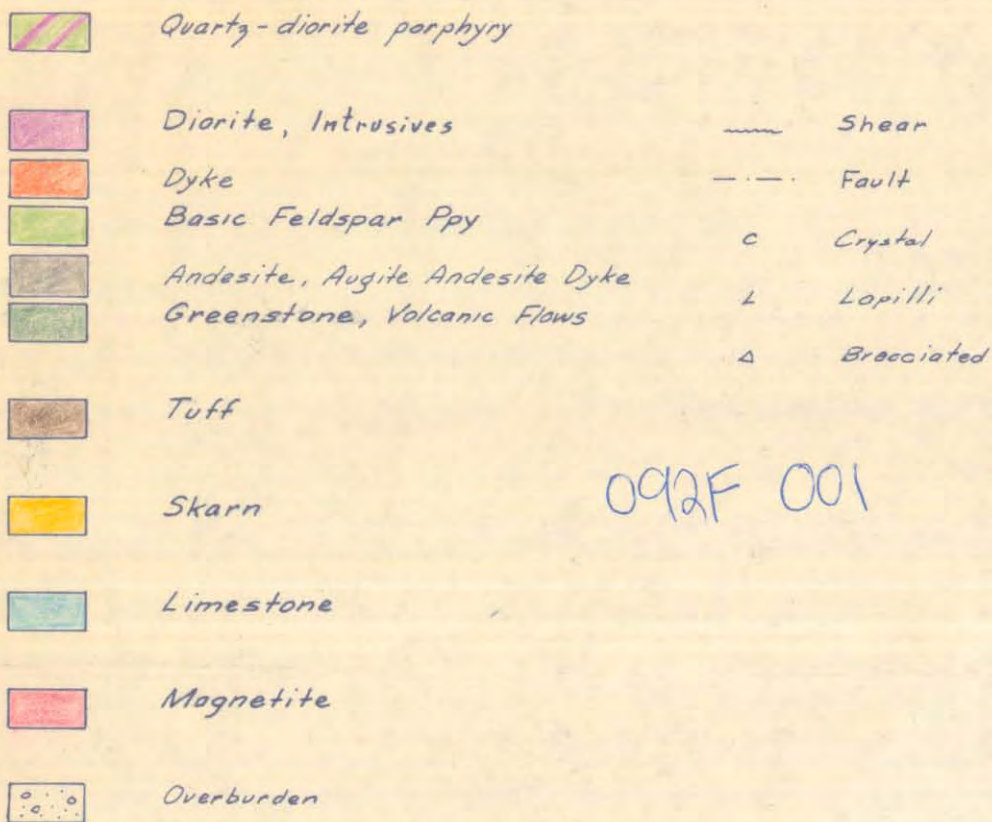 Quartz-diorite porphyry
Diorite, Intrusives
Dyke
Basic Feldspar Ppy
Andesite, Augite Andesite Dyke
Greenstone, Volcanic Flows
Tuff
Skarn
Limestone
Magnetite
Overburden
Shear
Fault
C Crystal
L Lapilli
Δ Brecciated
092F 001